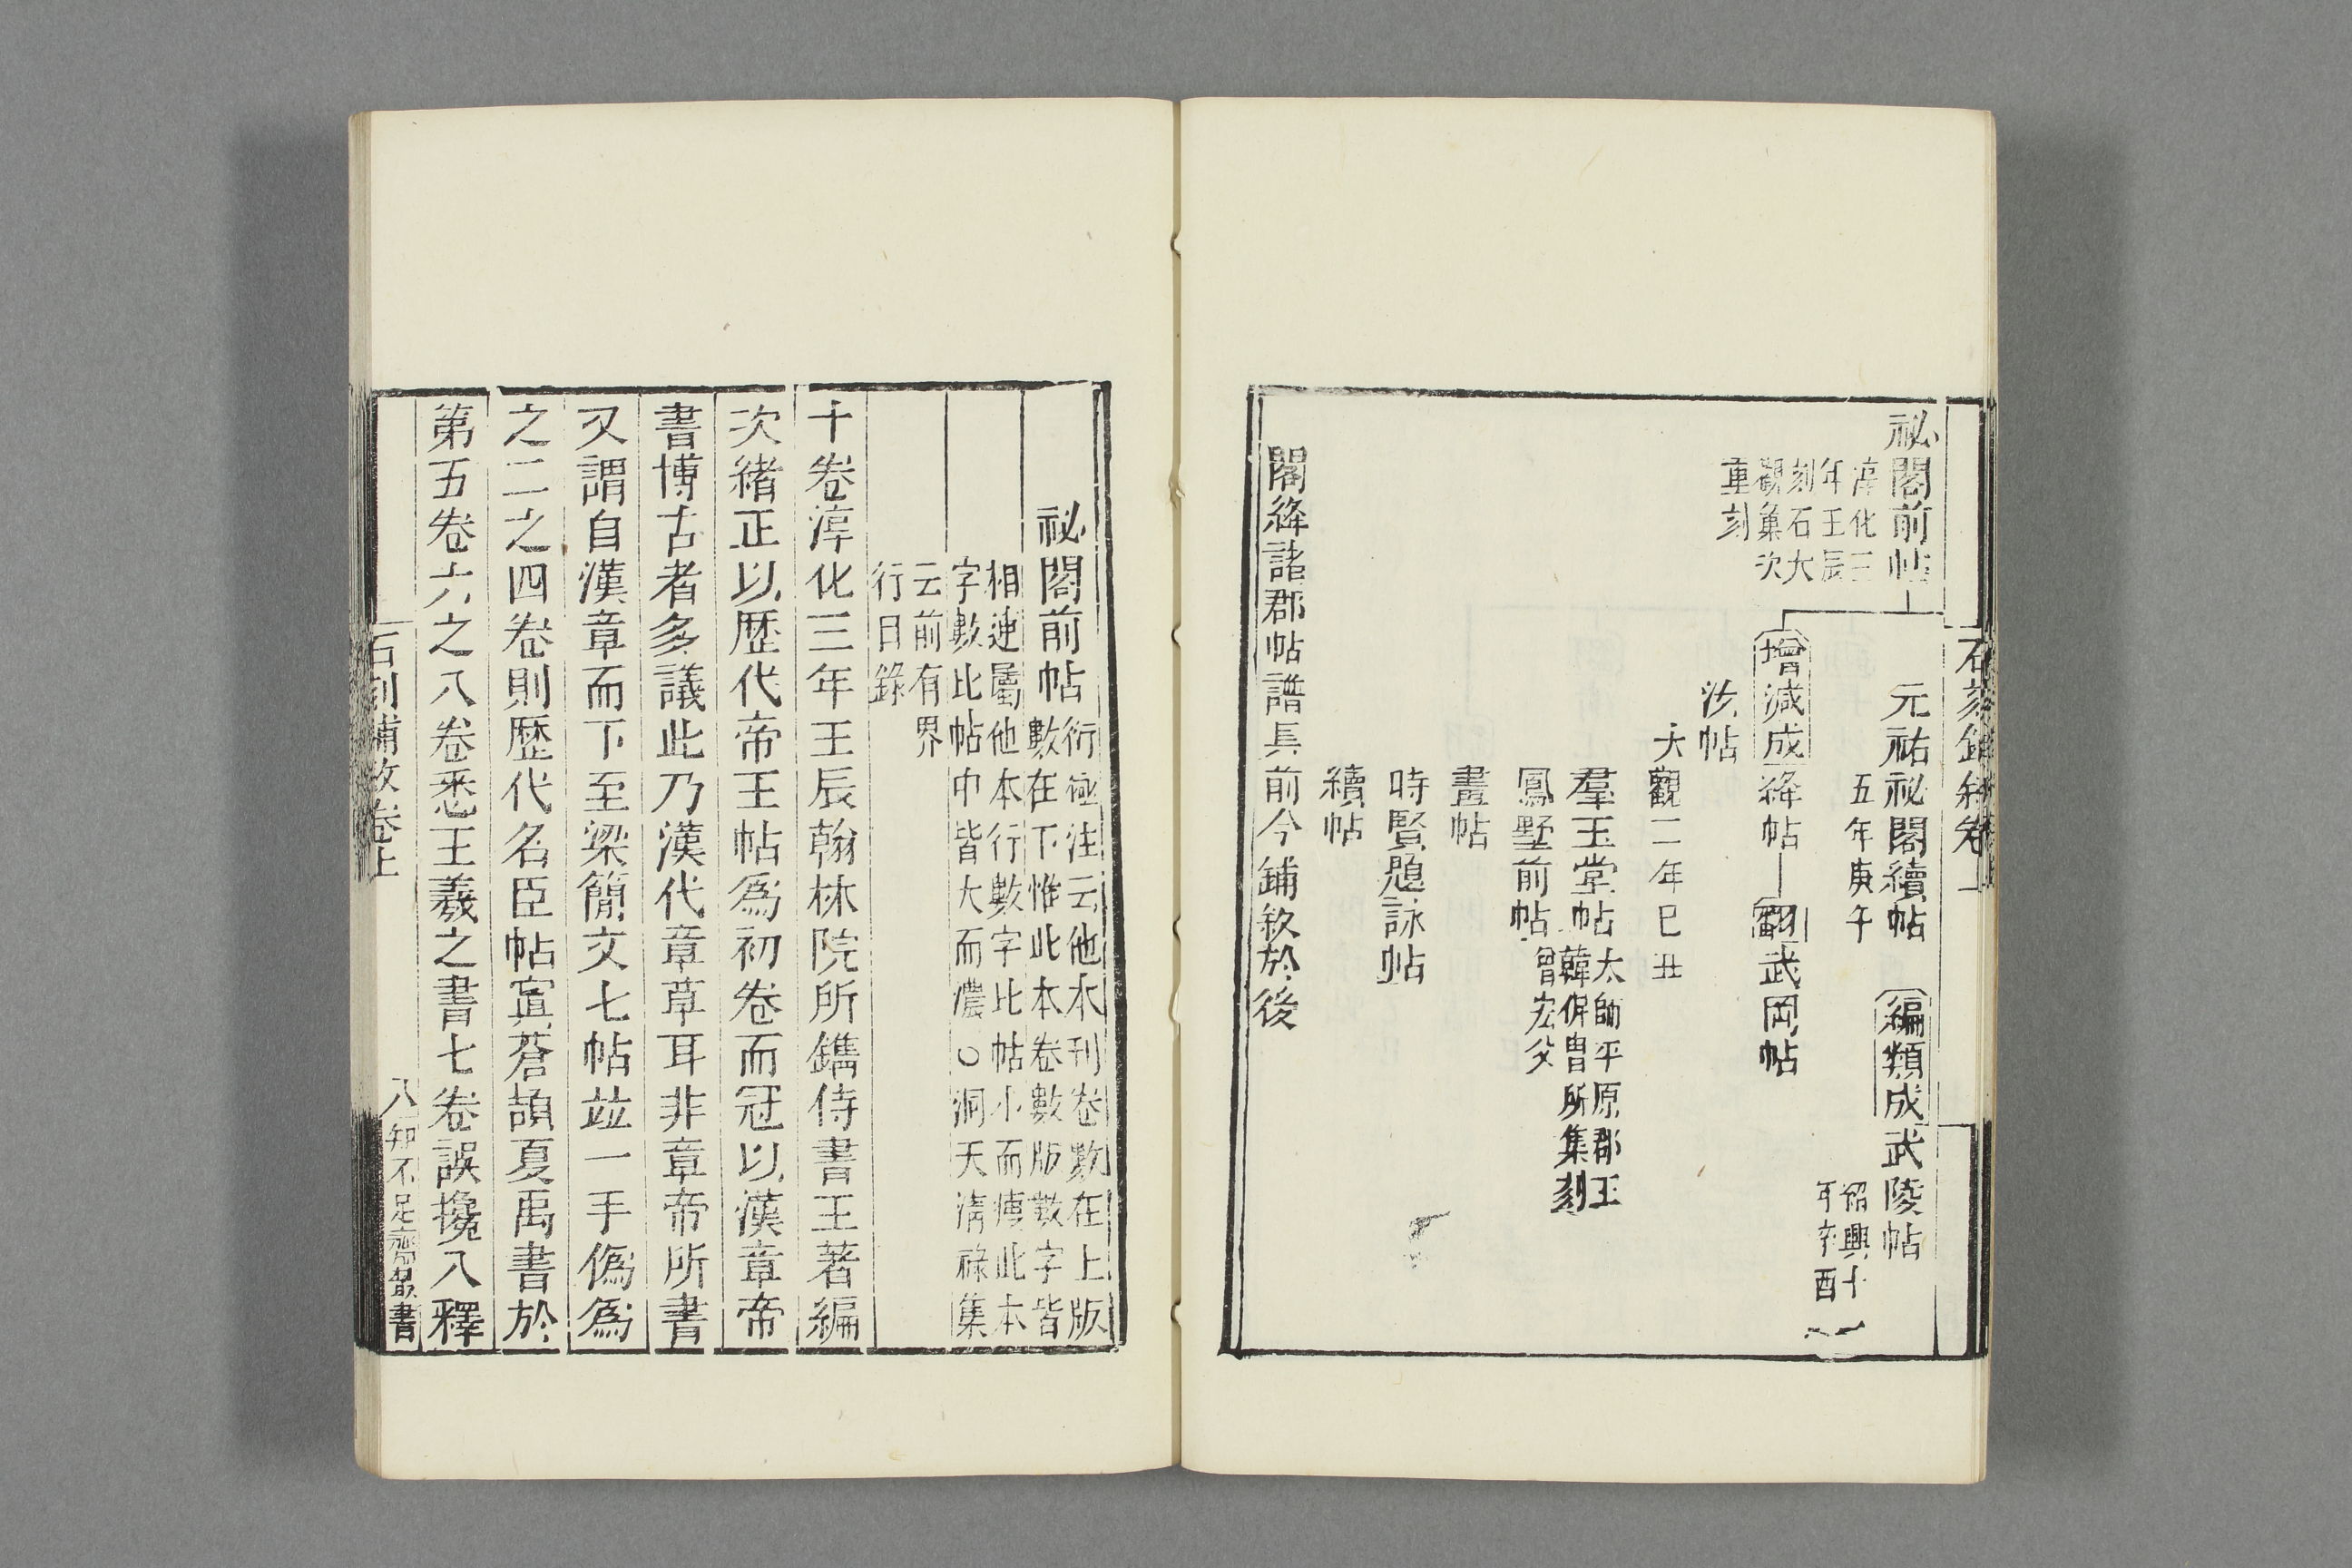 祕閣前帖
淳化三
年王辰
刻石大
觀藁次
重刻
元祐祕閣續帖
五年庚午
編類成武陵帖
紹興十
一年辛酉
增減成絳帖
翻武岡帖
汝帖
大觀二年己丑
羣玉堂帖
太師平原郡王
韓侂冑所集刻
鳳墅前帖
曾宏父
畫帖
時賢題詠帖
續帖
閣絳諸郡帖譜具前今鋪敘於後
祕閣前帖
衍極注云他本刊卷數在上版
數在下惟此本卷數版數字皆
相連屬他本行數字比帖小而瘦此本
字數比帖中皆大而濃○洞天清祿集
云前有界
行目錄
十卷淳化三年王辰翰林院所鐫侍書王著編
次緒正以歷代帝王帖爲初卷而冠以漢章帝
書博古者多議此乃漢代章草耳非章帝所書
又謂自漢章而下至梁簡文七帖竝一手僞爲
之二之四卷則歷代名臣帖寘蒼頡夏禹書於
第五卷六之八卷悉王羲之書七卷誤攙入釋
石刻鋪敘卷上
八
知不足齋叢書